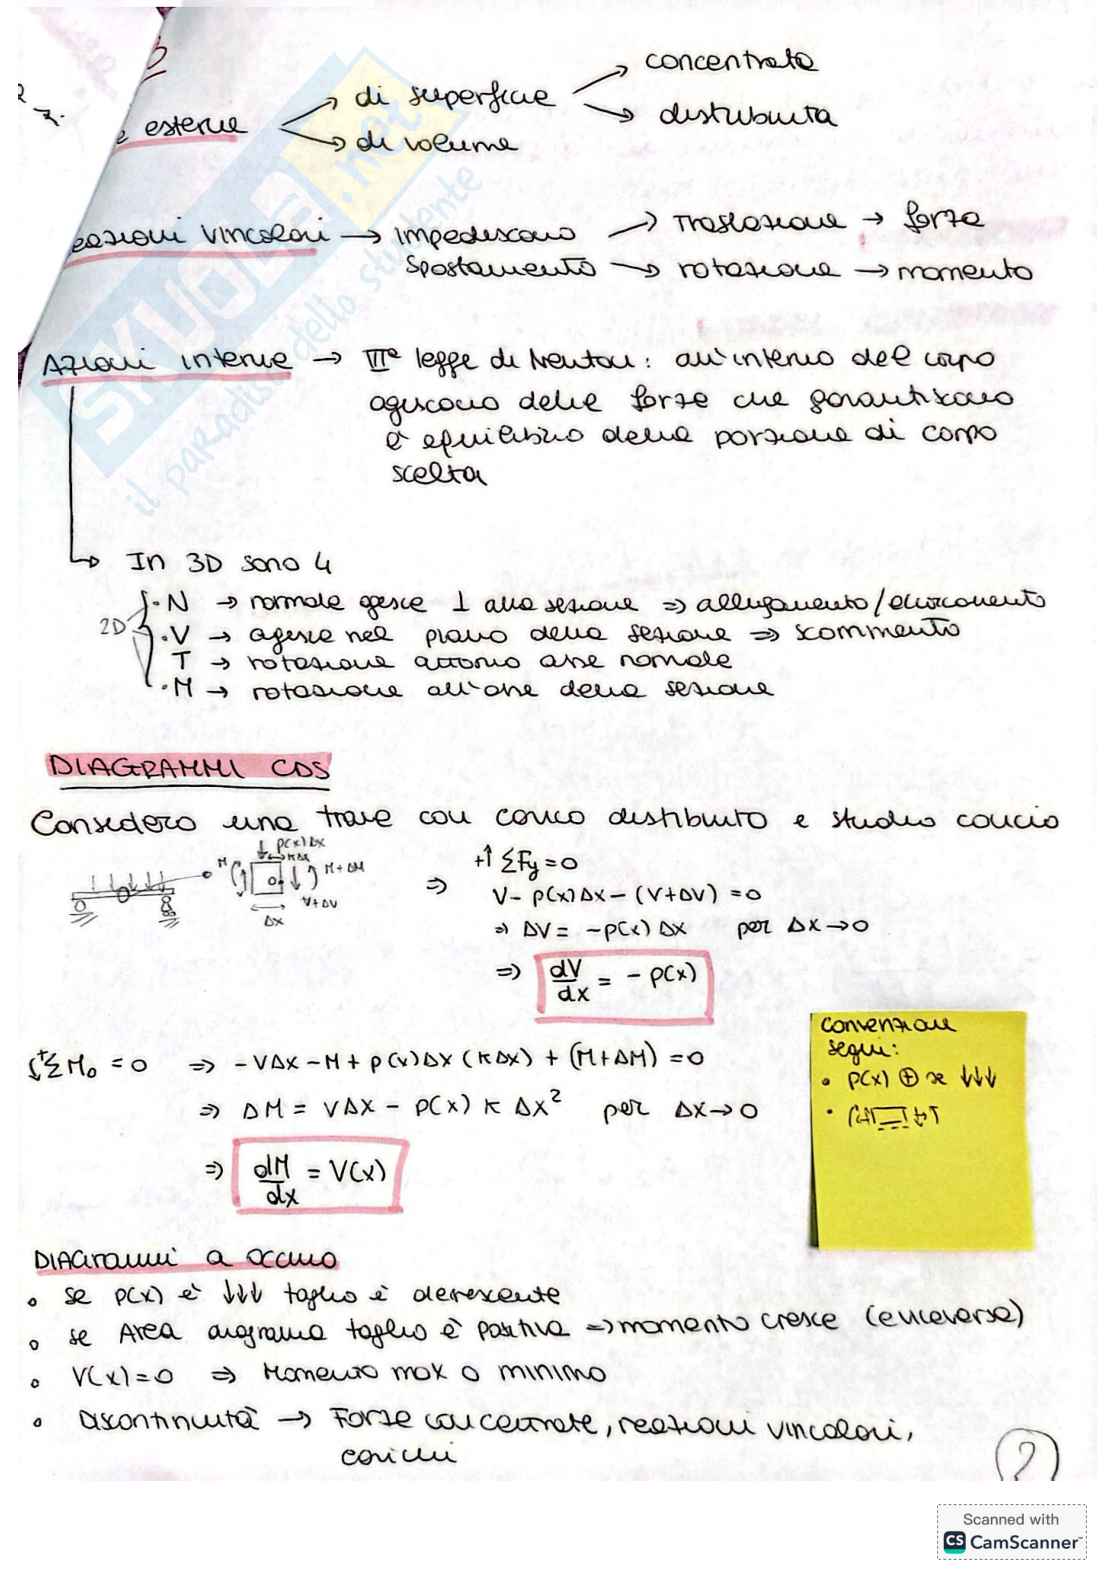 e esterne → di superficie → concentrata
→ distribuita
→ di volume
eazioni vincolari → impediscono → Traslazione → forza
spostamento → rotazione → momento
Azioni interne → IIIª legge di Newton: all'interno del corpo
agiscono delle forze che garantiscono
è equilibrio della porzione di corpo
scelta
→ In 3D sono 4
2D
• N → normale ⊥ alla sezione ⇒ allungamento/
• V → agisce nel piano della sezione ⇒ scorrimento
T → rotazione attorno asse normale
• M → rotazione all'asse della sezione
DIAGRAMMI CDS
Considero una trave con carico distribuito e studio concio
p(x)Δx
kΔx
M
M+ΔM
O
V+ΔV
Δx
⇒ +↑ΣFy = 0
V - p(x)Δx - (V+ΔV) = 0
⇒ ΔV = -p(x)Δx per Δx→0
⇒ dV/dx = - p(x)
+ΣMo = 0 ⇒ -VΔx - M + p(x)Δx(kΔx) + (M+ΔM) = 0
⇒ ΔM = VΔx - p(x) k Δx² per Δx→0
⇒ dM/dx = V(x)
Convenzione
segni:
• p(x) ⊕ se ↓↓↓
DIAGrammi a occhio
• se p(x) è ↓↓↓ taglio è decrescente
• se Area diagramma taglio è positiva ⇒ momento cresce (e viceversa)
• V(x)=0 ⇒ Momento max o minimo
• Discontinuità → Forze concentrate, reazioni vincolari,
carichi
2
SKUOLA.net
il paradiso dello studente
Scanned with
CS CamScanner